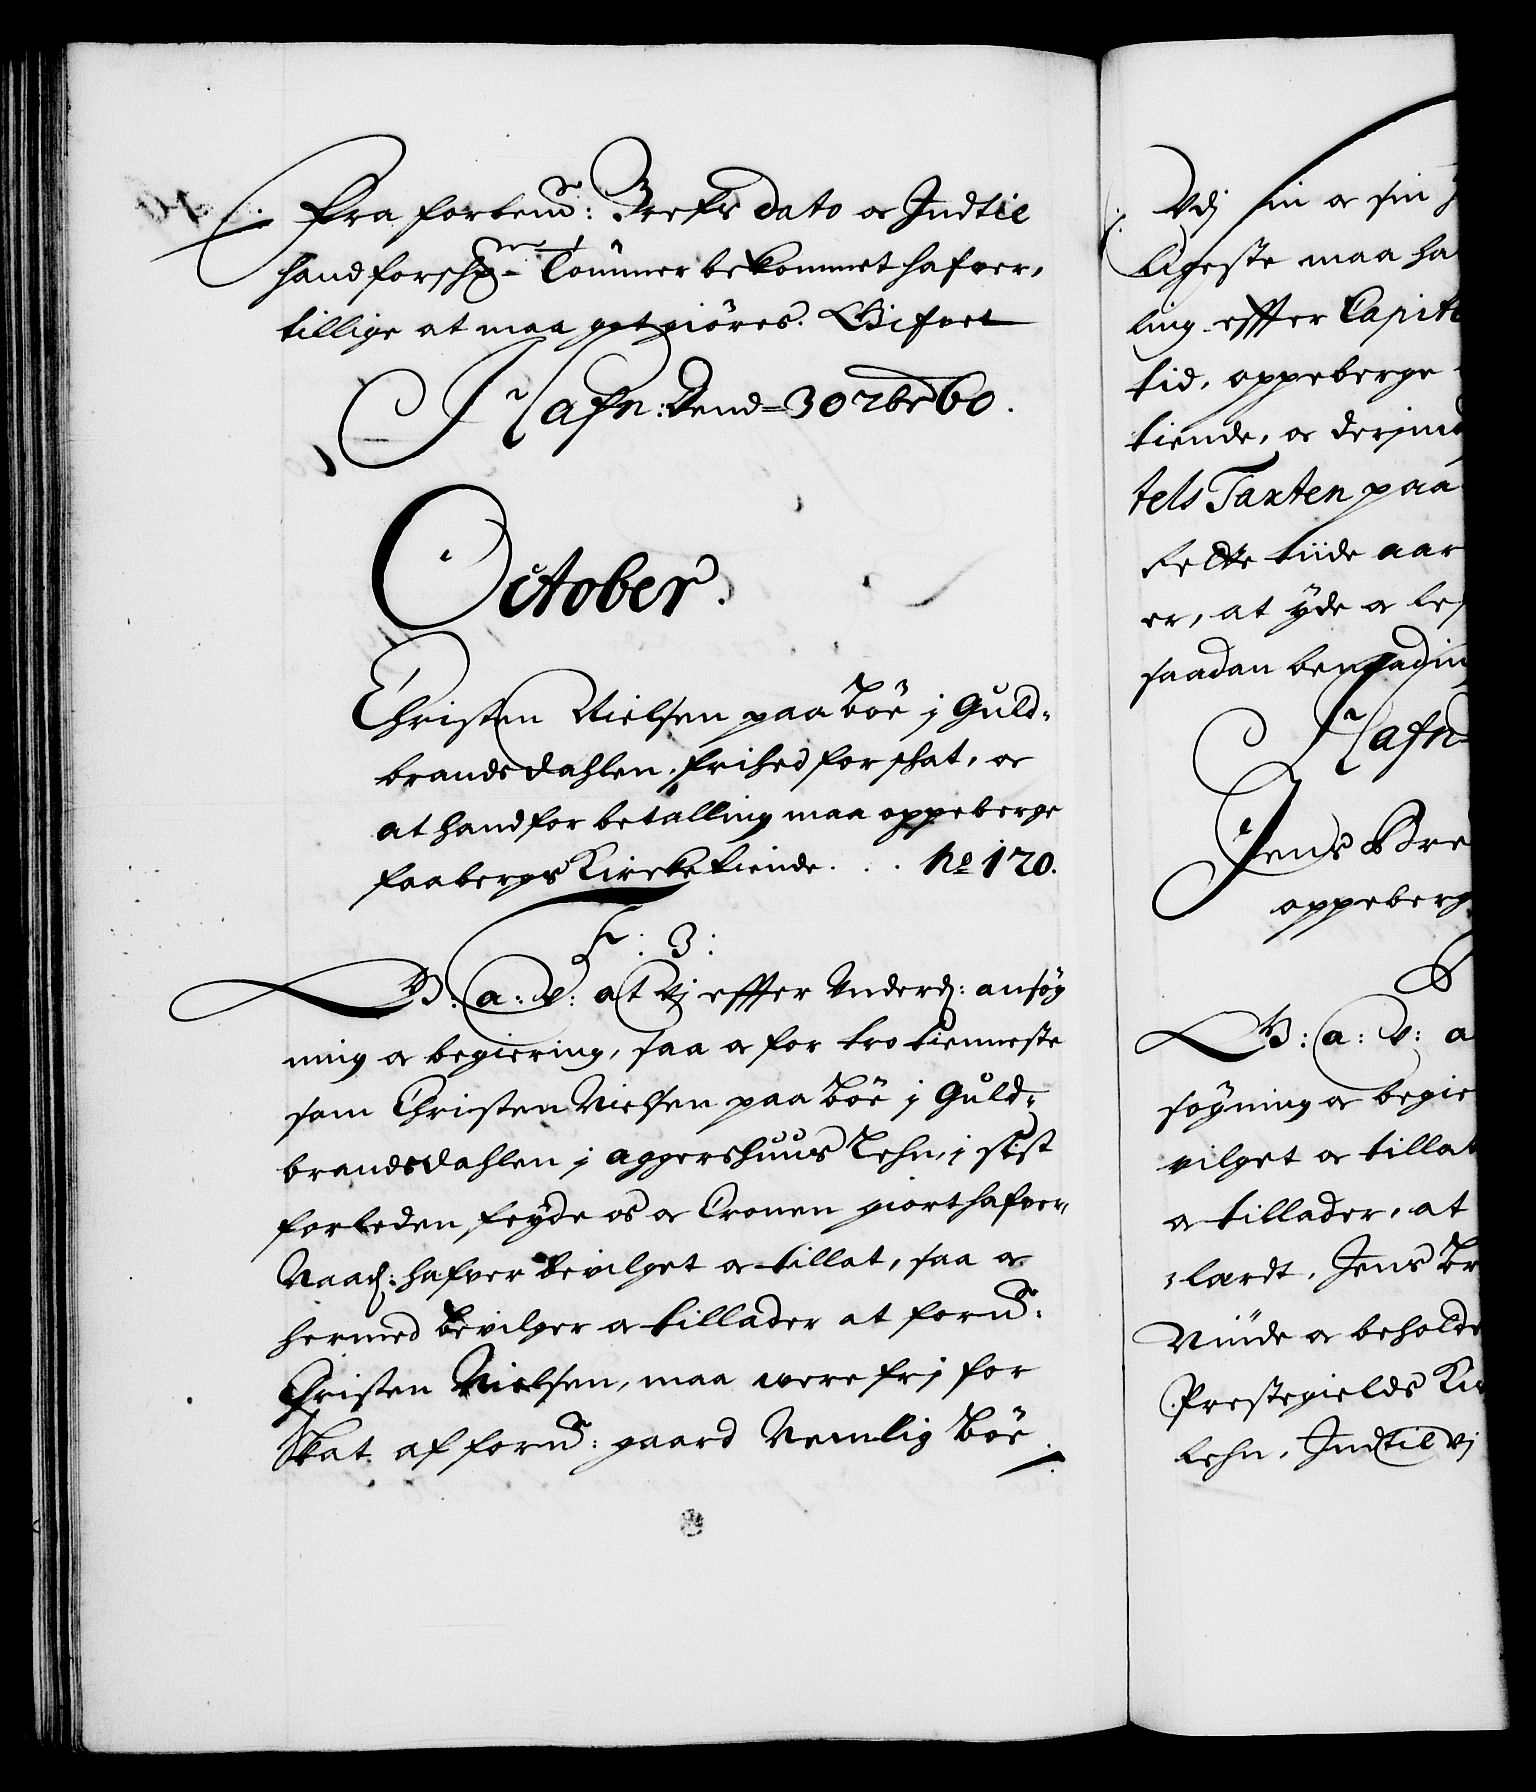 Fra forbemd: Brefs dato oc Indtil
hand forschne Tömmer bekommet hafver,
tillige at maa gotgiöres. Gifvet
Hafn: Dend 30 7br 60.
October.
Christen Nielsen paa Böe j Guld-
brandsdahlen, frihed for schat, oc
at hand for betalling maa oppeberge
faabergs Kircke tiende. . . No 170.
F: 3:
G: a: v: at Vj effter Underd: ansög
ning oc begiering, saa oc for tro tienneste
som Christen Nielsen paa Böe j Guld-
brandsdahlen j aggershuus Lehn, j sist
forleden feyde os oc Cronen giort hafver,
Naad: hafver bevilget oc tillat, saa oc
hermed Bevilger oc tillader at fornd:
Christen Nielsen, maa were frj for
Skat af fornd: gaard Nemlig Böe
Vdj sin oc sin
ligeste maa ha
ling effter Capit
tid, oppeberge
tiende, oc derjmod
tels Taxten paa
rette tiide aar
er, at yde oc le
saadan bengading
Hafn
Jens Bre
oppeberg
G: a: v: a
söygning oc begie
vilget oc tillat
oc tillader, at
lardt, Jens Br
Niüde oc beholde
Prestegields Kir
Lehn, Indtil vj